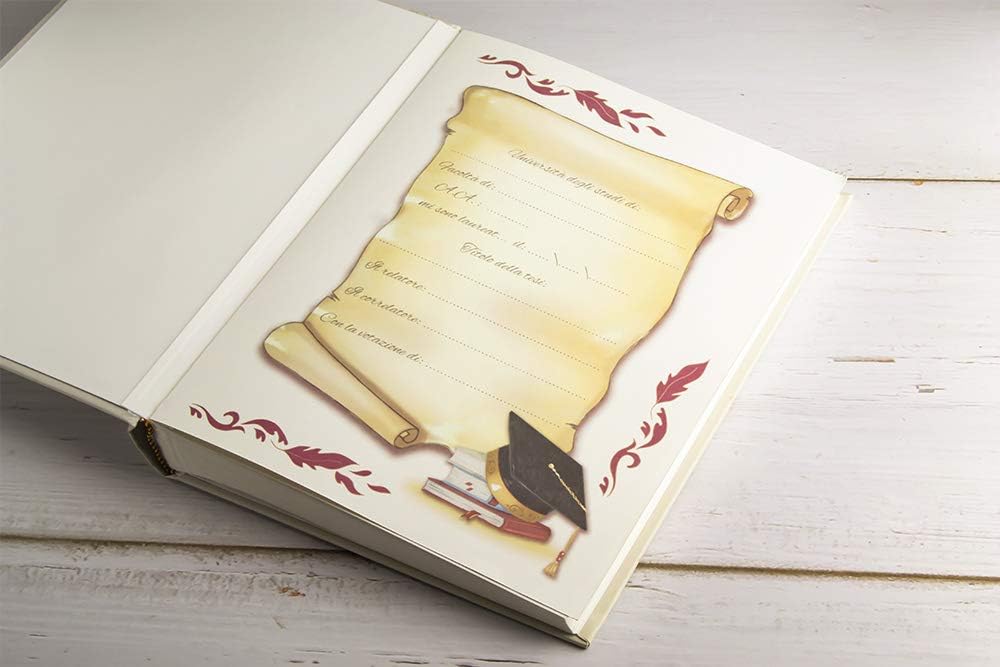 Università degli studi di:
Facoltà di:
A.A.:
mi sono laureat... il: ....\....\....
Titolo della tesi:
Il relatore:
Il correlatore:
Con la votazione di: